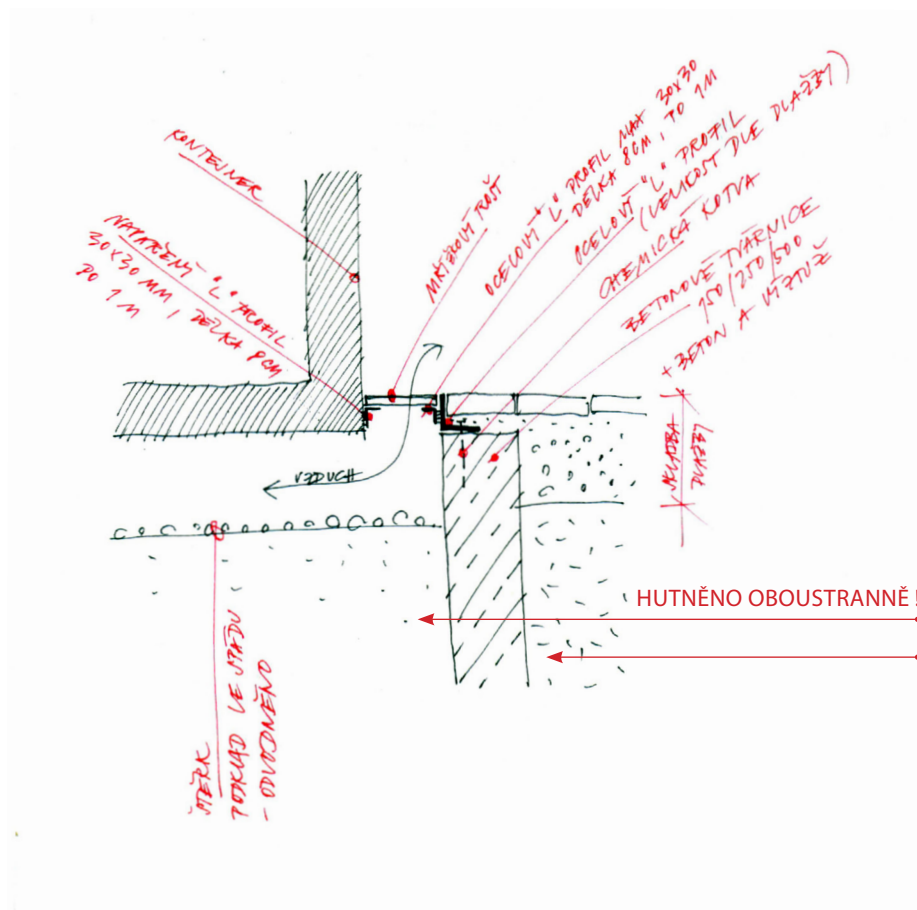 KONTEJNER
NAPAŘENÝ "L" PROFIL
30X30 MM, DÉLKA 8CM
PO 1 M
MŘÍŽKOVÝ ROŠT
OCELOVÝ "L" PROFIL MAX 30X30
DÉLKA 8CM, PO 1M
OCELOVÝ "L" PROFIL
(VELIKOST DLE DLAŽBY)
CHEMICKÁ KOTVA
BETONOVÉ TVÁRNICE
150/250/500
+ BETON A VÝZTUŽ
VZDUCH
SKLADBA
DLAŽBY
HUTNĚNO OBOUSTRANNĚ!
ŠTĚRK
PODKLAD VE SPÁDU
- ODVODNĚNO